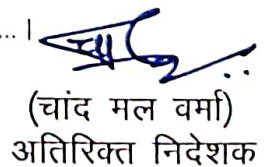 ... ।
(चांद मल वर्मा)
अतिरिक्त निदेशक